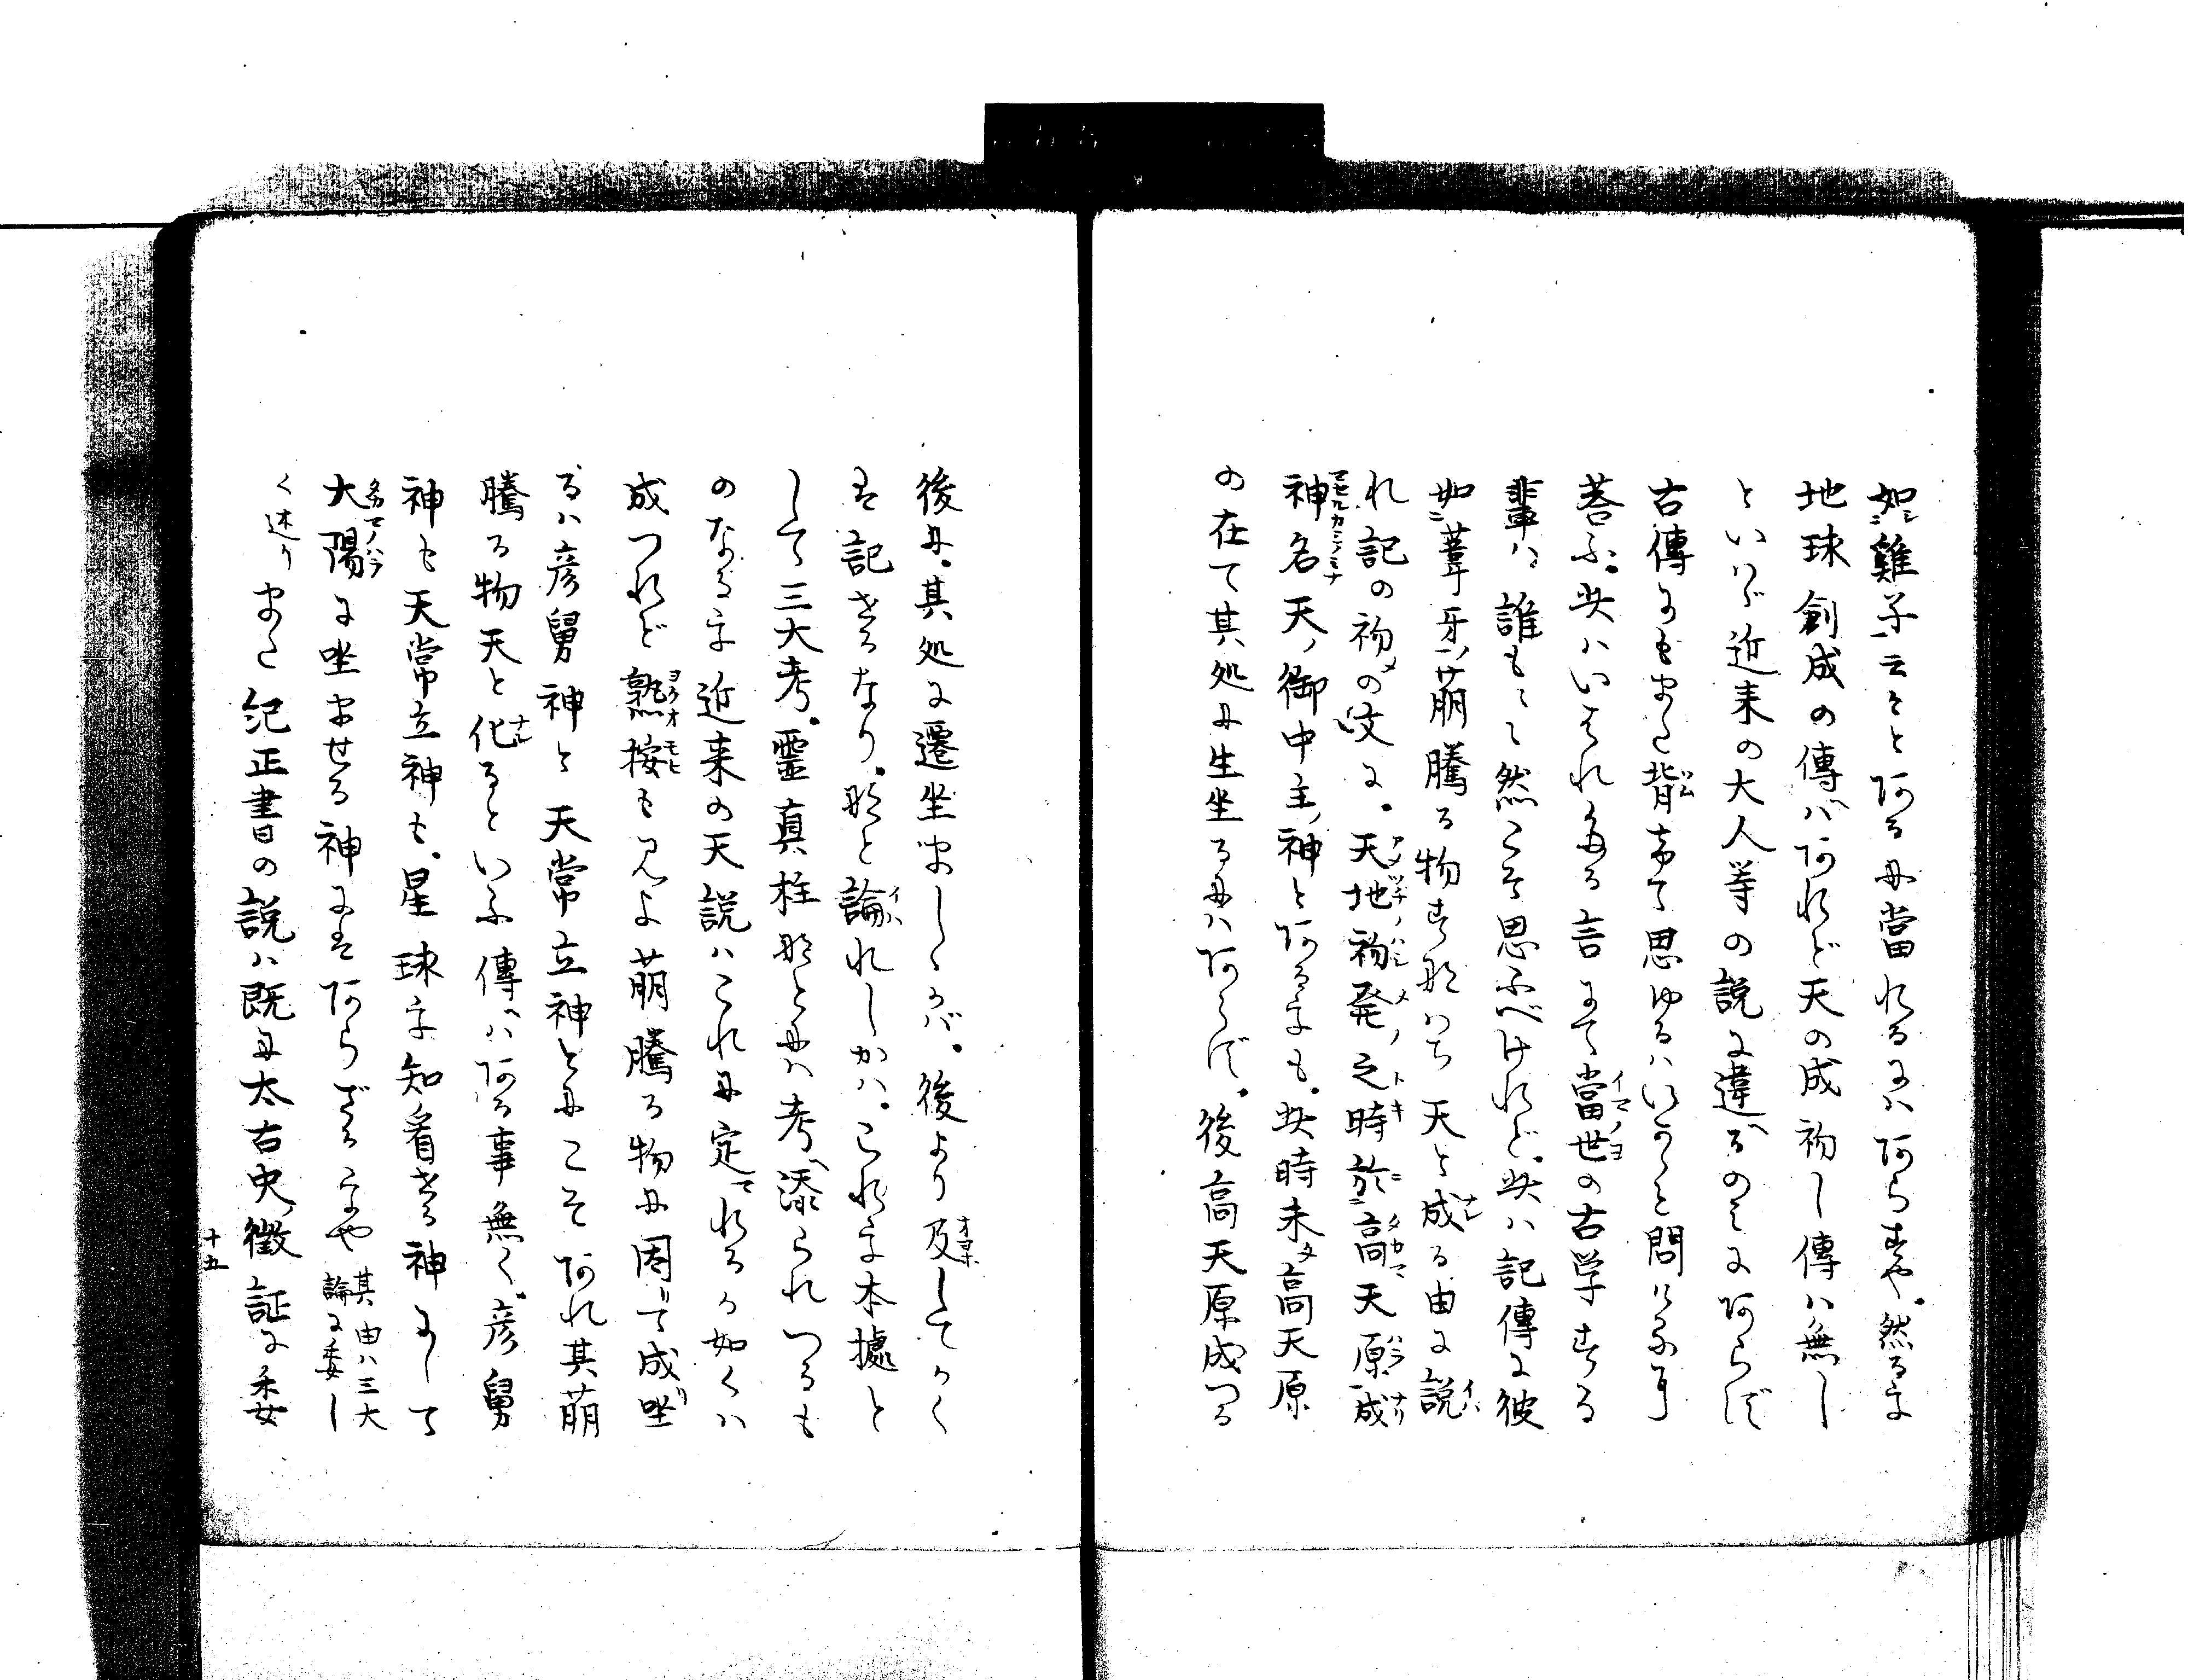 如雞子云々とあるに當れるにハあらずや。然るを
地球創成の傳ハあれど天の成初し傳ハ無し
といハゞ近来の大人等の説に違ふのミにあらず
古傳にもまた背きて思ゆるハいかにと問
荅ふ。此ハいはれたる言にて當世の古学する
輩ハ誰もヽヽ然こそ思ふべけれど。此ハ記傳に彼
如葦牙萌騰る物すなハち天と成る由に説
れ記の初めの文に。天地初発之時於高天原成
神名天ノ御中主ノ神とあるをも。此時未タ高天原
の在て其処に生坐るにハあらず。後高天原成つる
後に。其処に遷坐ましヽかバ。後より及してかく
は記せるなり。など論れしかハ。これを本據と
して三大考。霊真柱などにハ考へ添られつるも
のなるを近来の天説ハこれに定れるが如くハ
成つれど熟按も見よ萌騰る物に因て成坐
るハ彦舅神と天常立神とにこそあれ其萌
騰る物天と化るといふ傳ハある事無く。彦舅
神も天常立神も。星球を知看せる神にして
大陽に坐ませる神にはあらざるをや 其由ハ三大
論に委し
く述り また紀正書の説ハ既に太古史徴証に委
十五